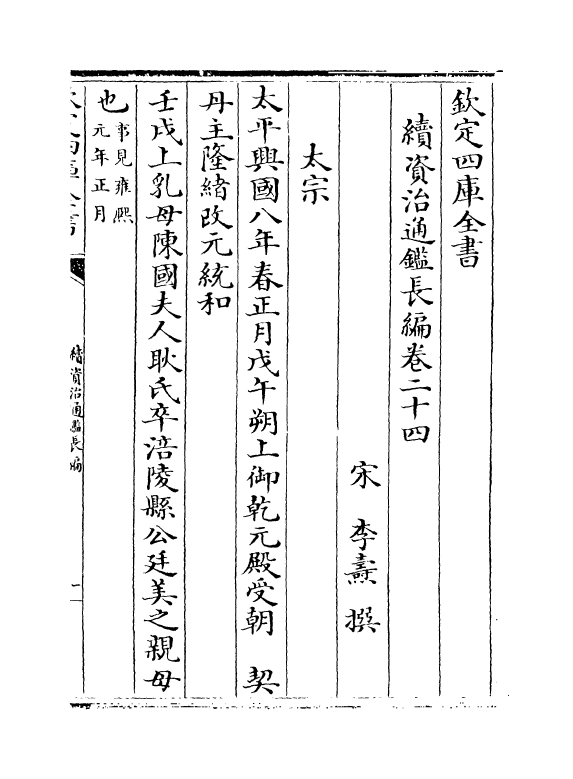 欽定四庫全書
續資治通鑑長編卷二十四
宋 李燾 撰
太宗
太平興國八年春正月戊午朔上御乾元殿受朝 契
丹主隆緒改元統和
壬戌上乳母陳國夫人耿氏卒涪陵縣公廷美之親母
也事見雍熙
元年正月
續資治通鑑長編
一